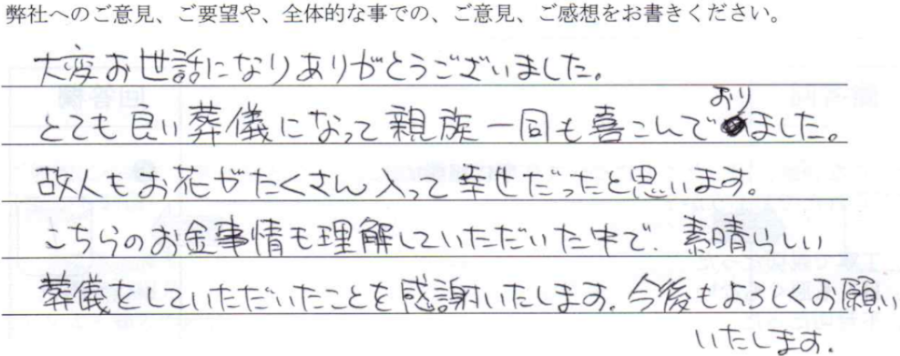 弊社へのご意見、ご要望や、全体的な事での、ご意見、ご感想をお書きください。
大変お世話になりありがとうございました。
とても良い葬儀になって親族一同も喜こんでおりました。
故人もお花がたくさん入って幸せだったと思います。
こちらのお金事情も理解していただいた中で、素晴らしい
葬儀をしていただいたことを感謝いたします。今後もよろしくお願い
いたします。